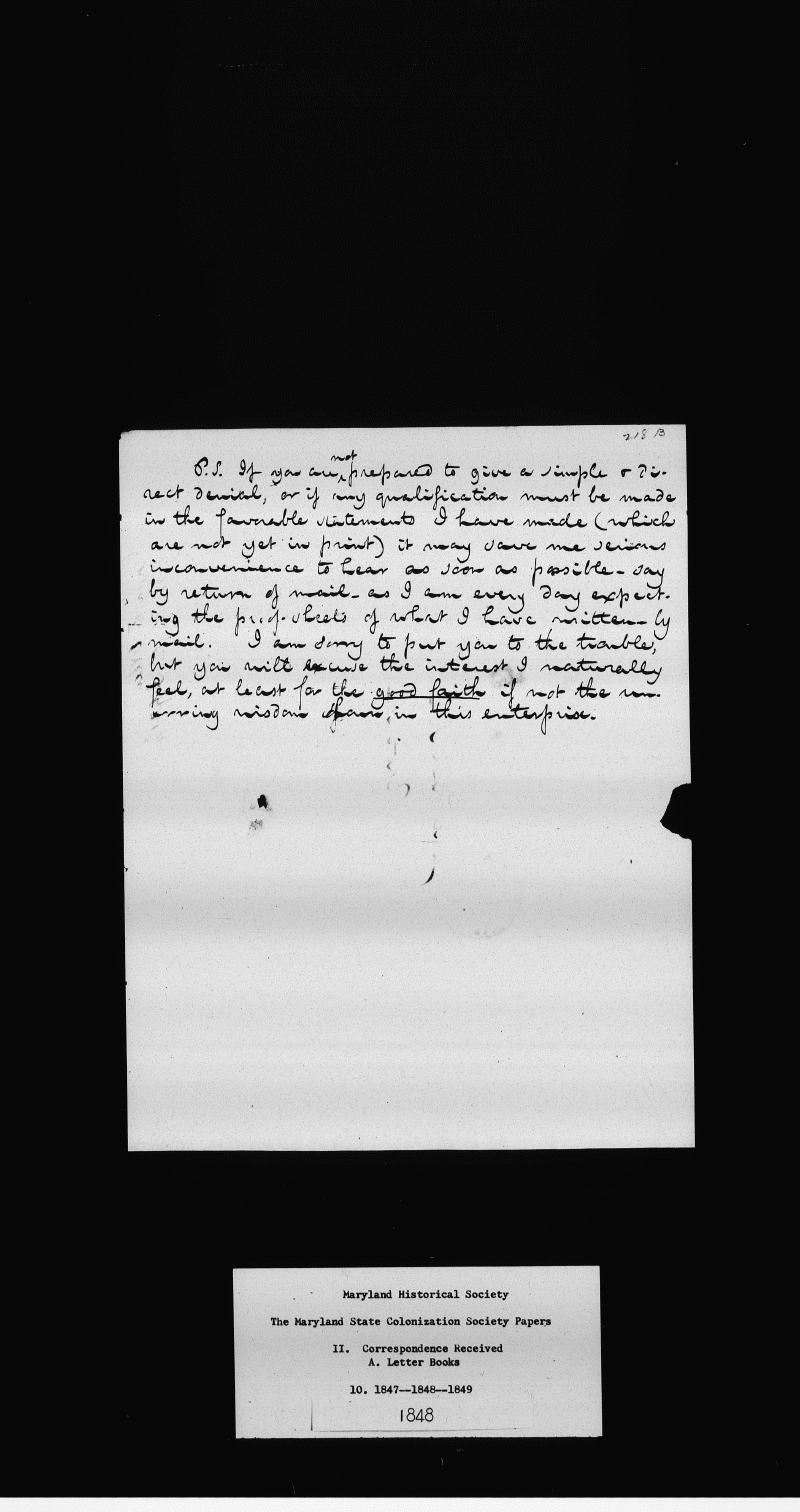 218 B
P.S. If you are not prepared to give a simple & di-
rect denial, or if any qualification must be made
in the favorable statements I have made (which
are not yet in print) it may save me serious
inconvenience to hear as soon as possible - say
by return of mail - as I am every day expect-
ing the proof-sheets of what I have written - by
mail. I am sorry to put you to the trouble,
but you will excuse the interest I naturally
feel, at least for the good faith if not the un-
erring wisdom in this enterprise.
Maryland Historical Society
The Maryland State Colonization Society Papers
II. Correspondence Received
A. Letter Books
10. 1847--1848--1849
1848